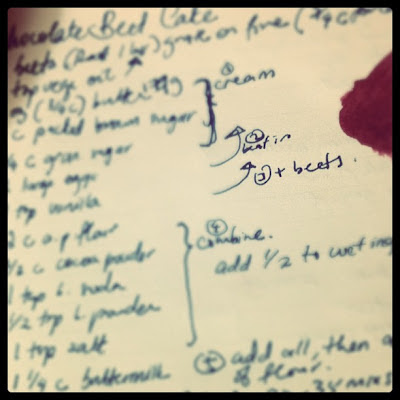 Chocolate Beet Cake
beets ( grate on fine (3/4 c
tsp veg. oil
g (1/4 c) butter
c packed brown sugar
① cream
1/4 c gran sugar
② beat in
2 large eggs
③ + beets.
1 tsp vanilla
2 c a.p flour
④ combine.
1/2 c cocoa powder
add 1/2 to wet ing
1 tsp b. soda
1/2 tsp b. powder
1 tsp salt
1 1/4 c buttermilk
⑤ add all, then
of flour.